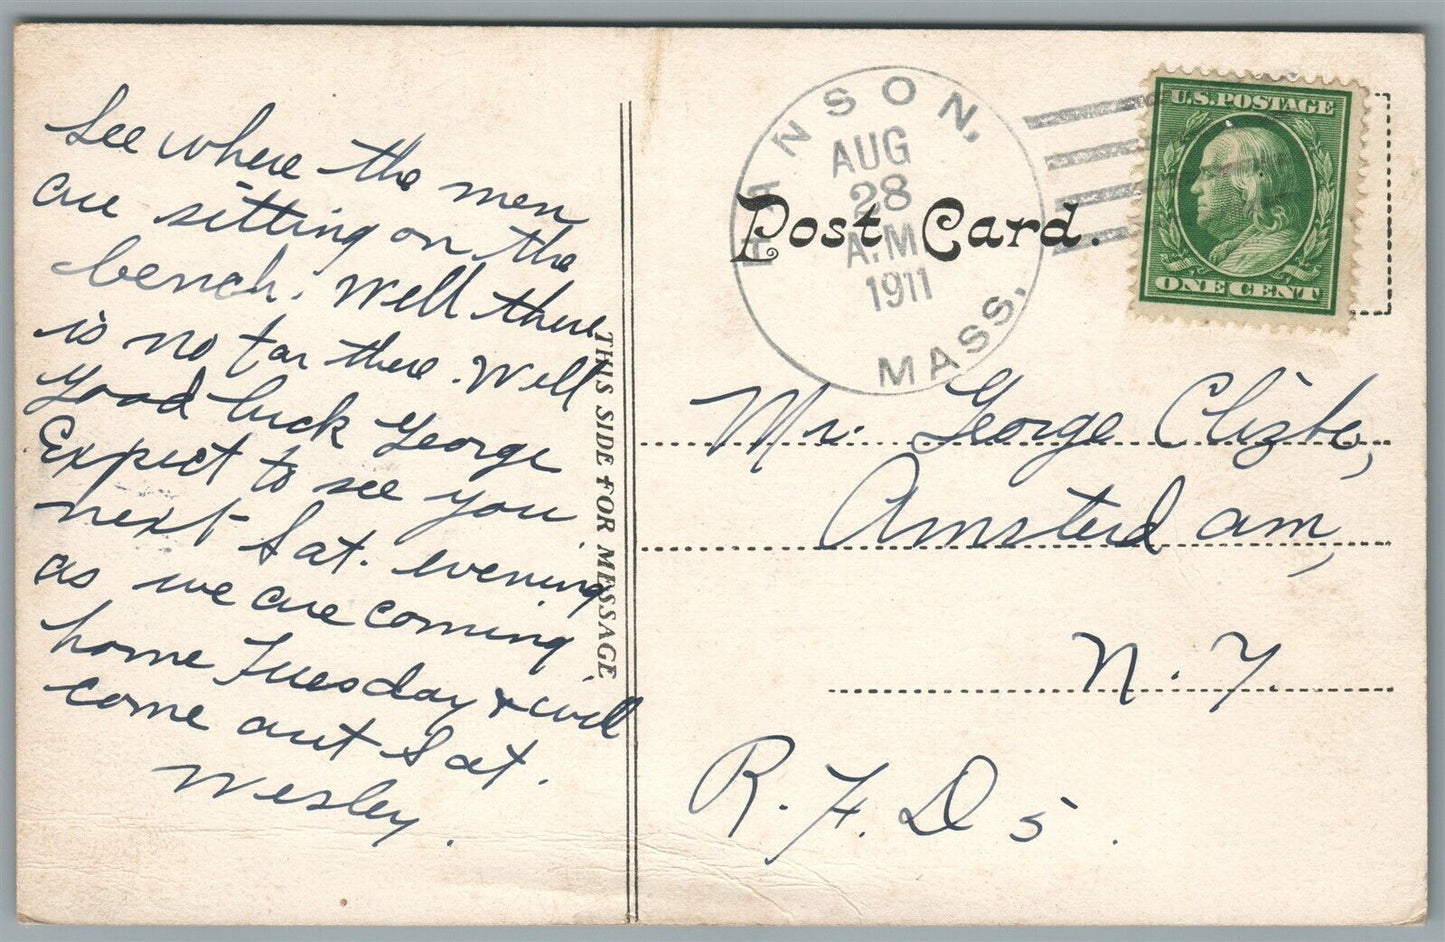 See where the men
are sitting on the
bench. Well there
is no tar there. Well
Good luck George
Expect to see you
next Sat. evening
as we are coming
home Tuesday & will
come out Sat.
Wesley.
THIS SIDE FOR MESSAGE
HANSON, MASS.
AUG
28
A.M
1911
U.S. POSTAGE
ONE CENT
Post Card.
Mr. George Clizbe,
Amsterdam,
N. Y.
R. F. D 5.